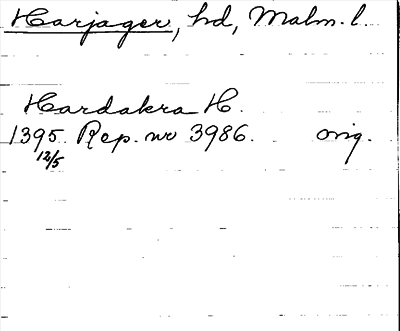 Harjager, hd, Malm. l.
Hardakra H.
1395 Rep. no 3986. orig.
12/5